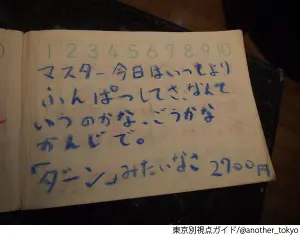 1 2 3 4 5 6 7 8 9 10
マスター今日はいつもより
ふんぱつしてさ、なんて
いうのかな、ごうかな
かんじで。
「ダーン」みたいなさ 2700円
東京別視点ガイド/@another_tokyo